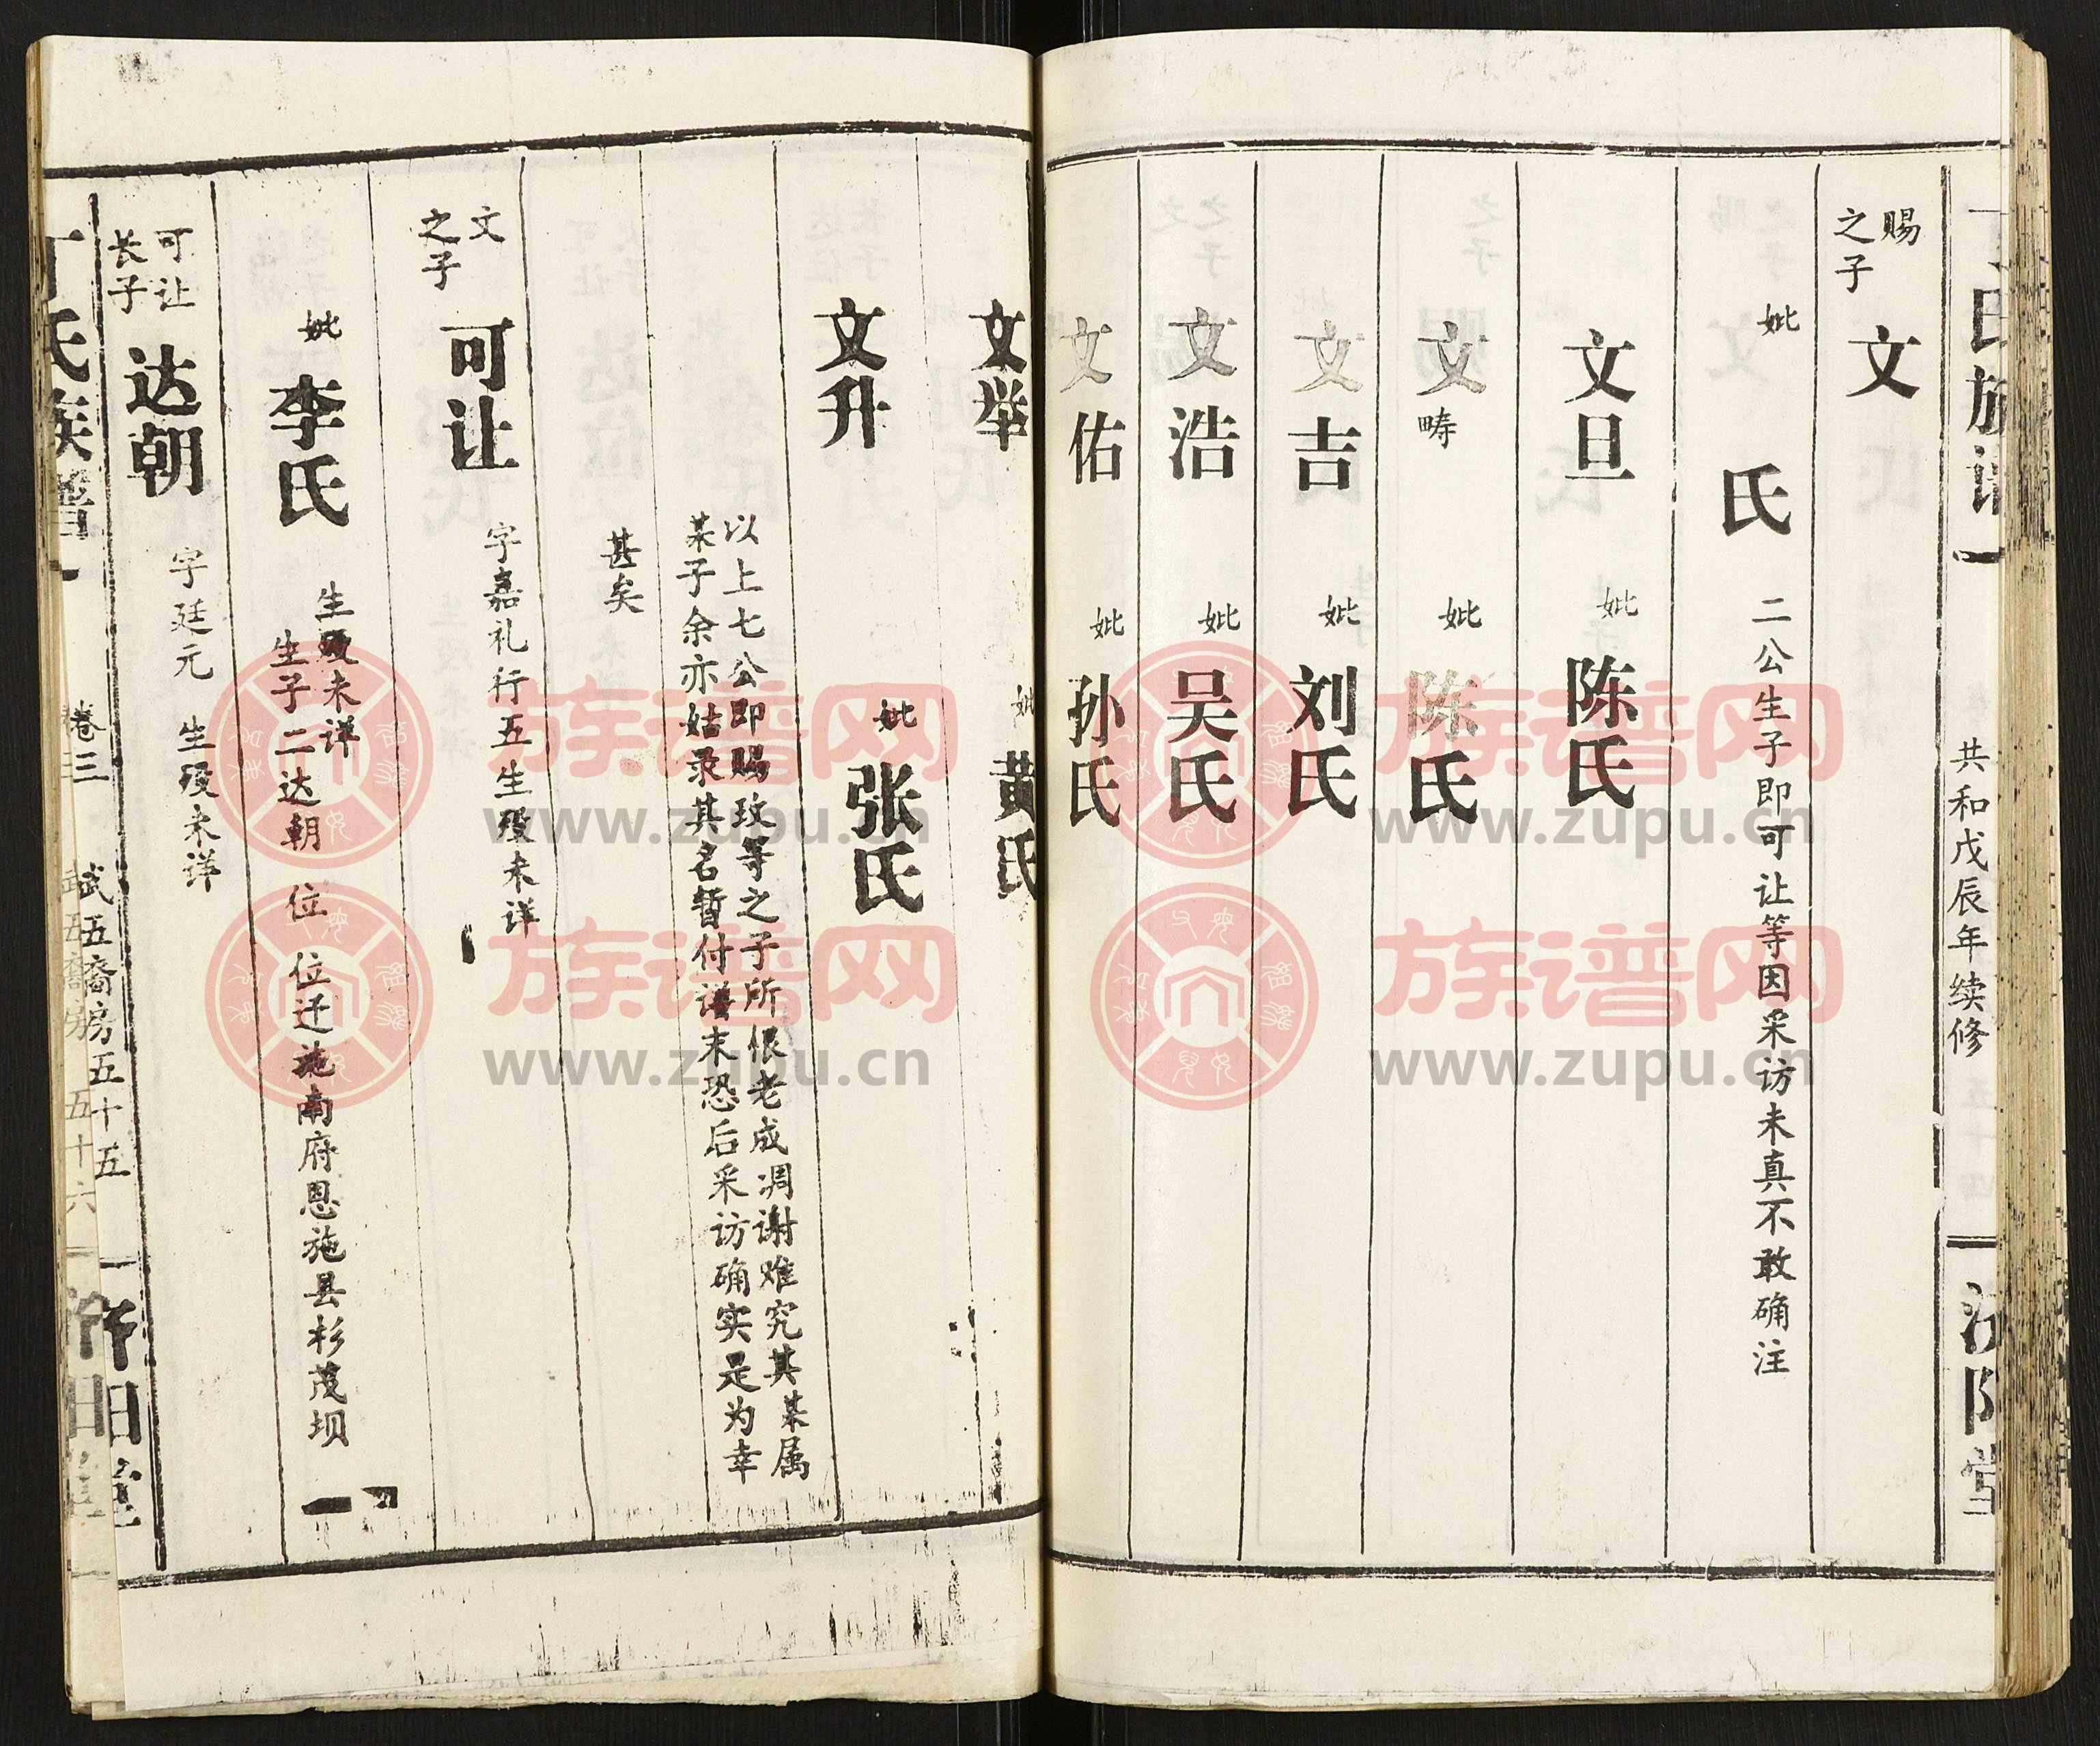 共和戊辰年续修
赐
之子
文
妣 氏 二公生子即可让等因采访未真不敢确注
文旦 妣 陈氏
文畴 妣 陈氏
文吉 妣 刘氏
文浩 妣 吴氏
文佑 妣 孙氏
文举 妣 黄氏
文升 妣 张氏
以上七公即赐玫等之子所恨老成凋谢难究其某属
某子余亦姑录其名暂付谱末恐后采访确实是为幸
甚矣
文
之子
可让 字嘉礼行五生殁未详
妣 李氏 生殁未详
生子二达朝 位 位迁施南府恩施县杉茂坝
可让
长子
达朝 字廷元 生殁未详
氏族谱 卷三 斌五裔房五十五
五十六
族谱网
www.zupu.cn
族谱网
www.zupu.cn
族谱网
www.zupu.cn
族谱网
www.zupu.cn